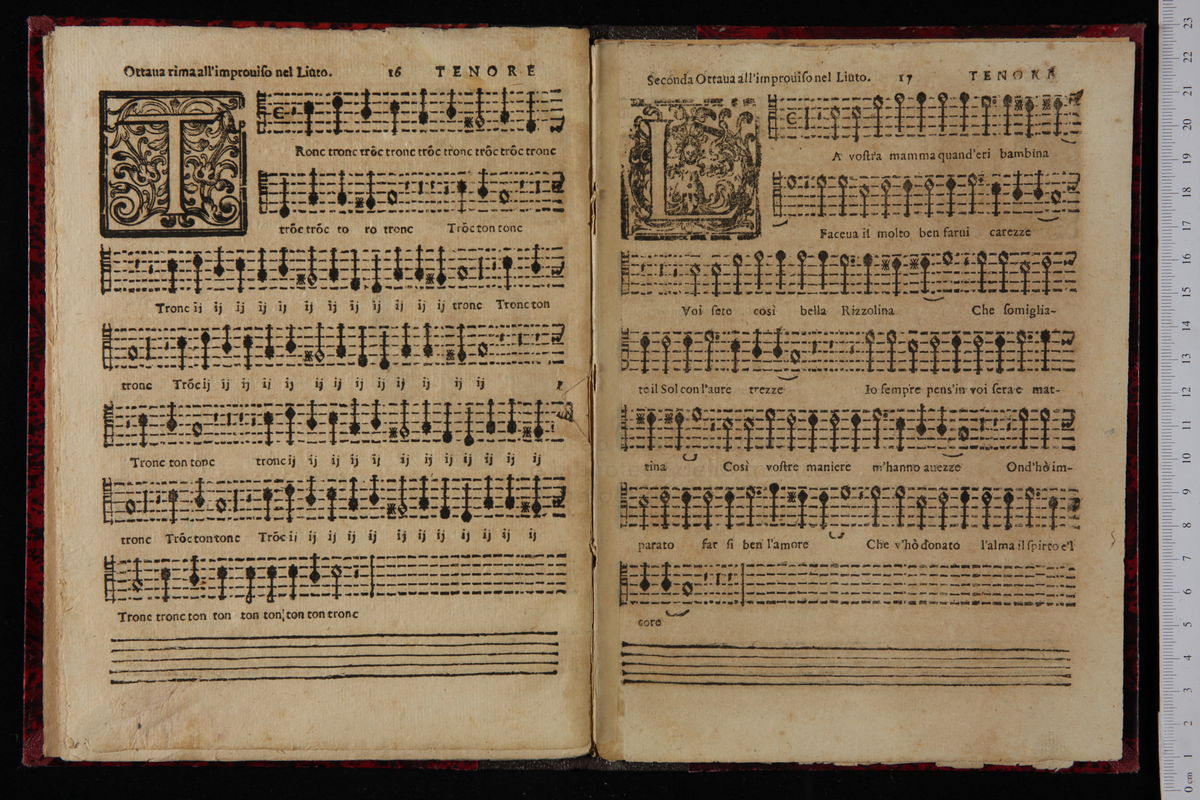 Ottaua rima all'improuiſo nel Liuto. 16 TENORE
TRonc tronc trõc tronc trõc tronc trõc trõc tronc
trõc trõc to ro tronc Trõc ton tonc
Tronc ij ij ij ij ij ij ij ij ij ij ij tronc Tronc ton
tronc Trõc ij ij ij ij ij ij ij ij ij ij ij
Tronc ton tonc tronc ij ij ij ij ij ij ij ij ij ij ij ij
tronc Trõc ton tonc Trõc ij ij ij ij ij ij ij ij ij ij ij
Tronc tronc ton ton ton ton ton ton tronc
Seconda Ottaua all'improuiſo nel Liuto. 17 TENORE
LA voſtra mamma quand'eri bambina
Faceua il molto ben farui carezze
Voi ſete così bella Rizzolina Che ſomiglia-
te il Sol con l'aure trezze Io ſempre pens'in voi ſera e mat-
tina Così voſtre maniere m'hanno auezze Ond'hò im-
parato far sì ben l'amore Che v'hò donato l'alma il ſpirto e'l
core
0 cm 1 2 3 4 5 6 7 8 9 10 11 12 13 14 15 16 17 18 19 20 21 22 23